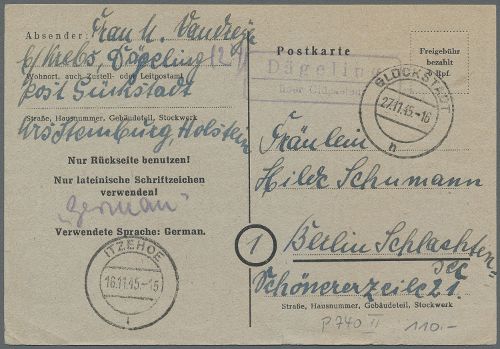 Absender: Frau U. Vandreje
b/Krebs, Dägeling (24)
Wohnort, auch Zustell- oder Leitpostamt
Post Gückstadt
Straße, Hausnummer, Gebäudeteil, Stockwerk
Krs Steinburg, Holstein
Nur Rückseite benutzen!
Nur lateinische Schriftzeichen
verwenden!
"German"
Verwendete Sprache: German.
ITZEHOE
16.11.45-15
Postkarte
Freigebühr
bezahlt
Rpf.
Dägeling
über Glückstadt
GLÜCKSTADT
27.11.45-16
n
Fräulein
Hilde Schumann
1
Berlin Schlachten-
see
Schönererzeile 21.
Straße, Hausnummer, Gebäudeteil, Stockwerk
P 740 II
110.-